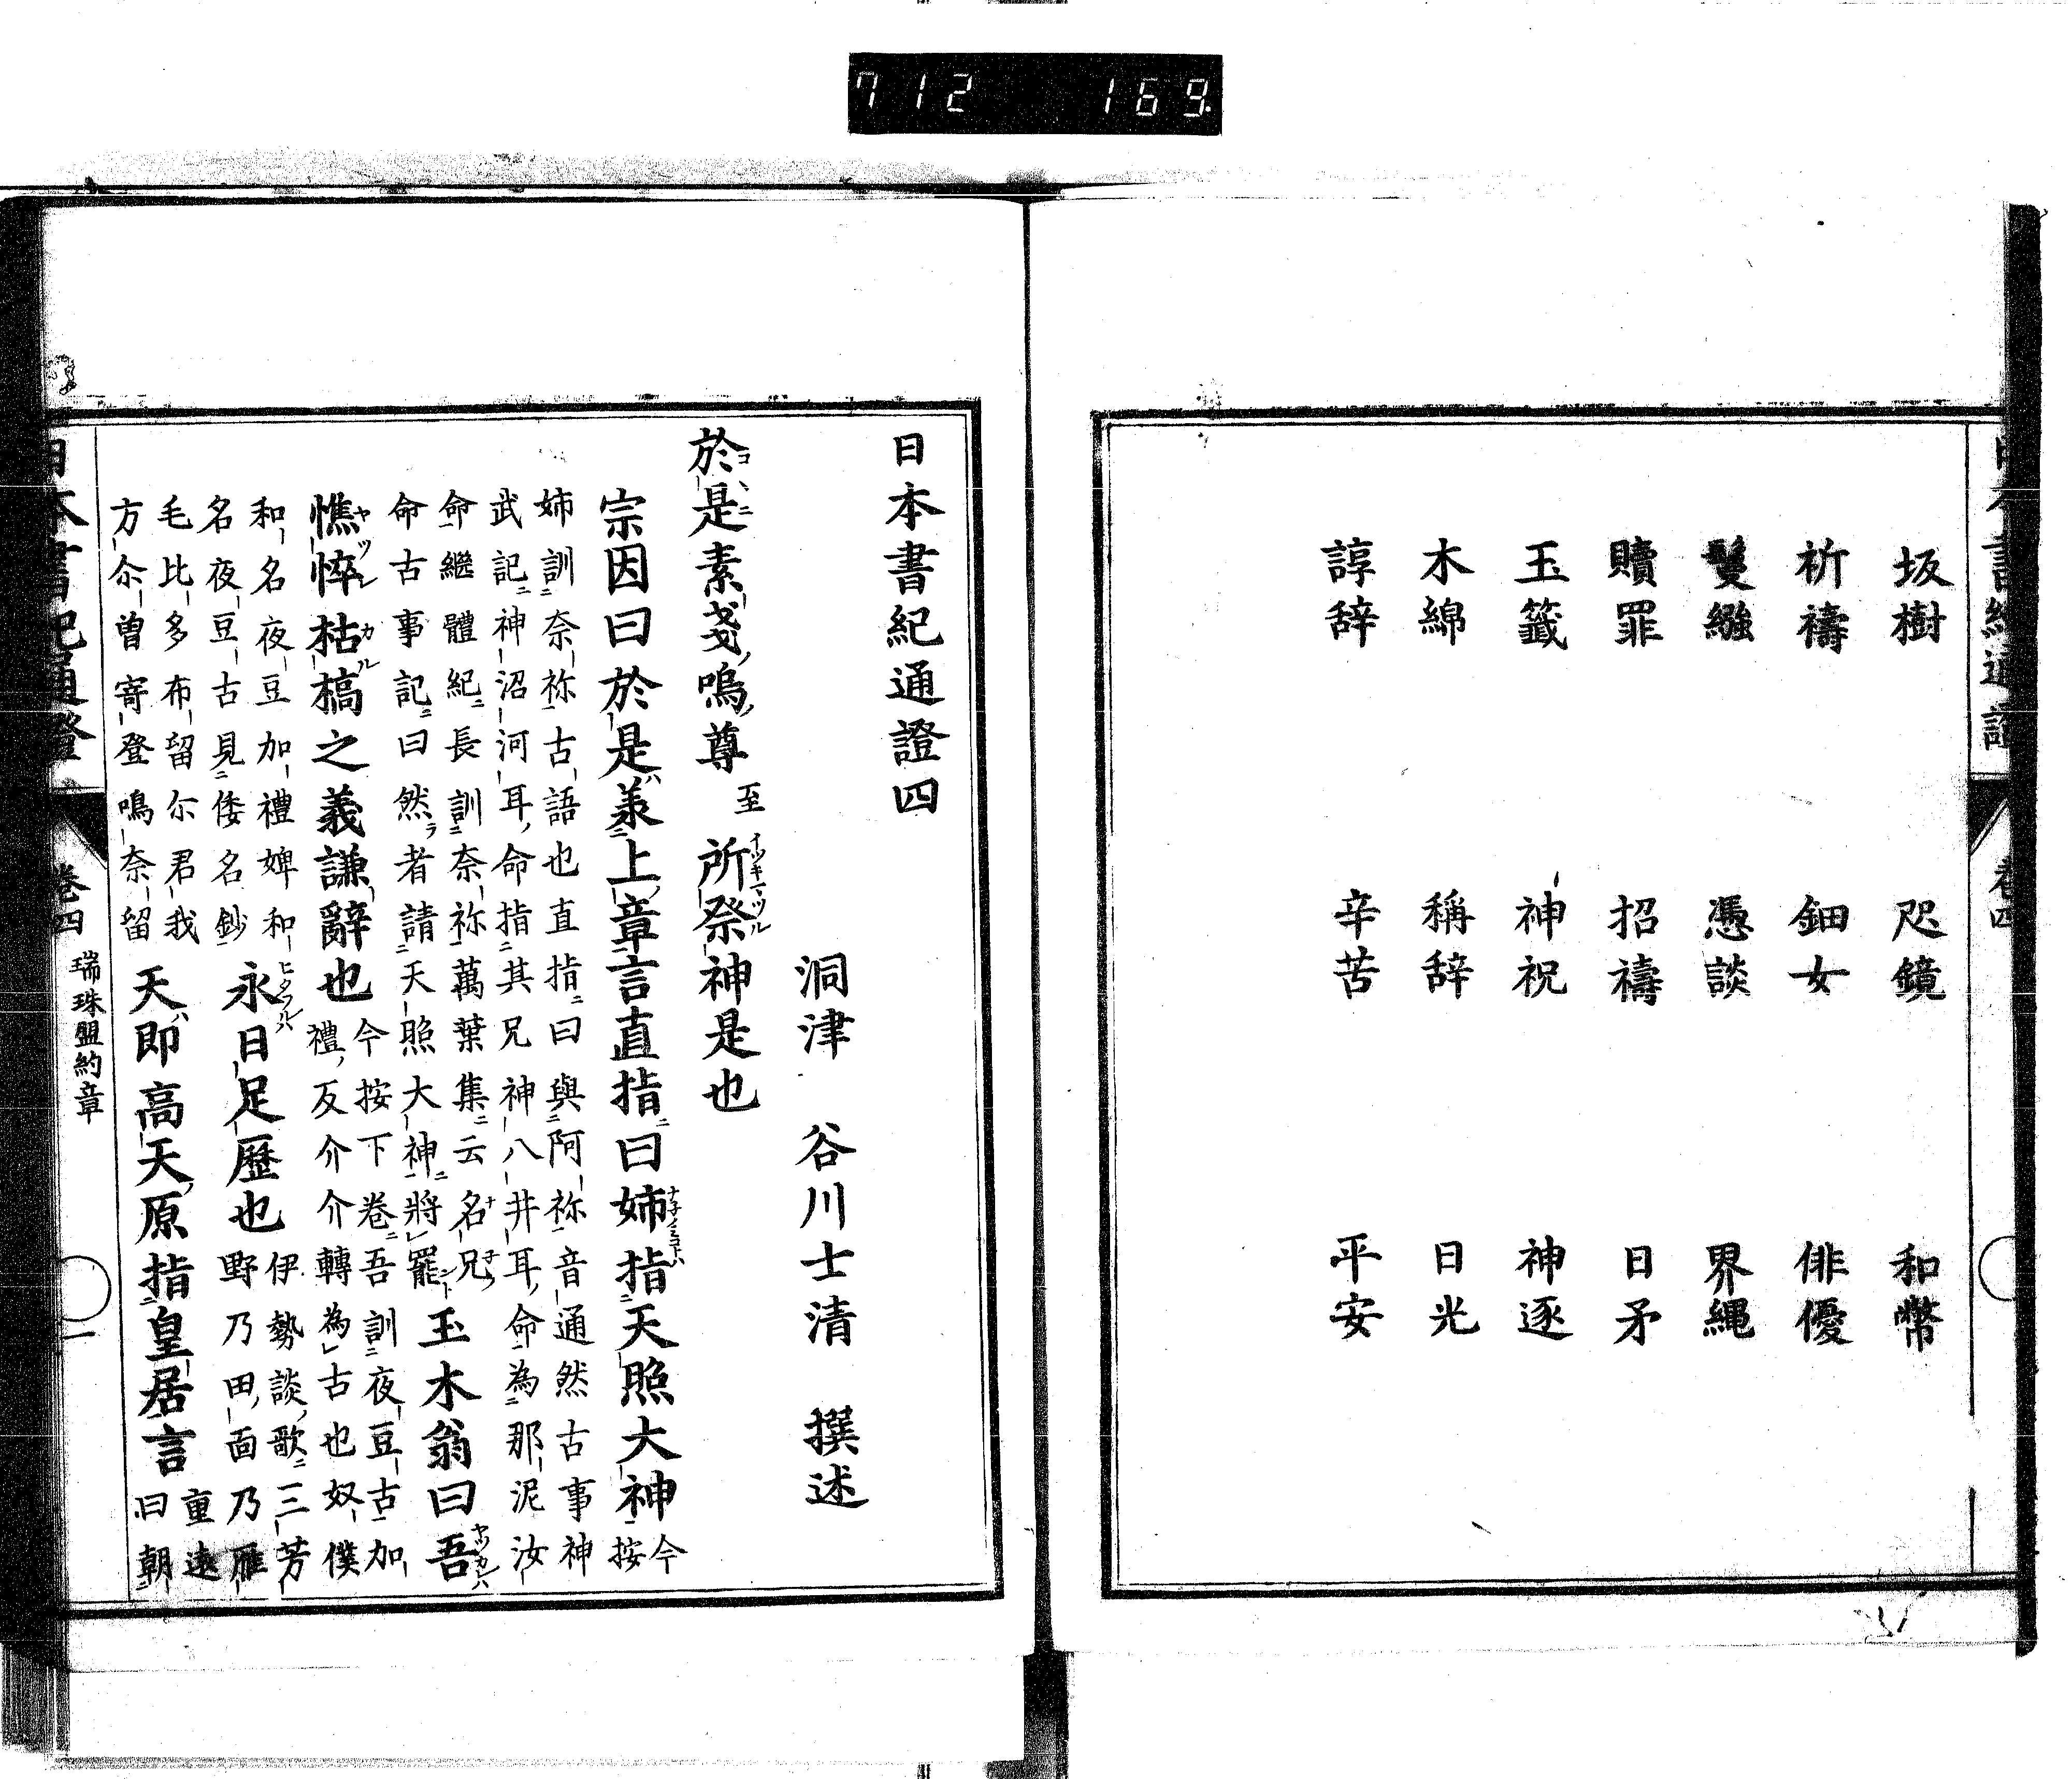 日本書紀通證 卷四
坂樹 咫鏡 和幣
祈禱 鈿女 俳優
鬘繦 憑談 界縄
贖罪 招禱 日矛
玉籤 神祝 神逐
木綿 稱辞 日光
諄辞 辛苦 平安
日本書紀通證四
洞津 谷川士清 撰述
於是素戔嗚尊 至 所祭神是也
宗因曰於是承上章言直指曰姉指天照大神 今按
姉訓奈祢古語也直指曰與阿祢音通然古事神
武記神沼河耳命指其兄神八井耳命為那泥汝
命繼體紀長訓奈祢萬葉集云名兄
命古事記曰然者請天照大神將罷
玉木翁曰吾
憔悴枯槁之義謙辭也
今按下卷吾訓夜豆古加
禮反介介轉為古也奴僕
和名夜豆加禮婢和
名夜豆古見倭名鈔
永日足歷也
伊勢談歌三芳
野乃田面乃雁
毛比多布留尓君我
方尓曽寄登鳴奈留
天即高天原指皇居言
重遠
曰朝
日本書紀通證 卷四 瑞珠盟約章 一
712 169